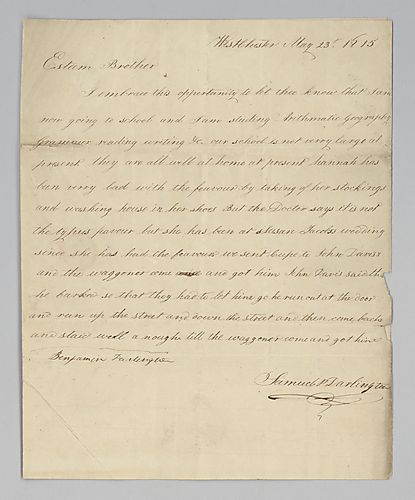 Westchester May 23d 1815
Esteem Brother
I embrace this opportunity to let thee know that I am
now going to school and I am studing Arithmatic Geography
Grammer reading writing &c. our school is not verry large at
present they are all well at home at present hannah has
ben verry bad with the feavour by taking of her stockings
and washing house in her shoes But the Doctor says it is not
the typus favour but she has been at Susan Jacobs wedding
since she has had the feavour we sent to John Daviss
and the waggoner come and got him John Davis said that
he so that they had to let him go he run out at the door
and run up the street and down the street and then come back
and staid well a nough till the waggoner come and got him
Benjamin Darlington
Samuel Darlington